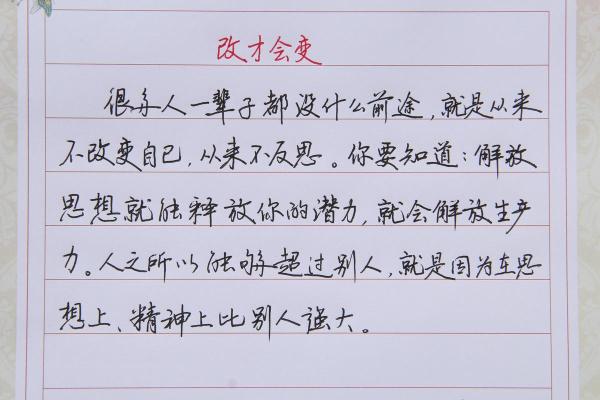 改才会变
很多人一辈子都没什么前途，就是从来
不改变自己，从来不反思。你要知道：解放
思想就能释放你的潜力，就会解放生产
力。人之所以能够超过别人，就是因为在思
想上、精神上比别人强大。